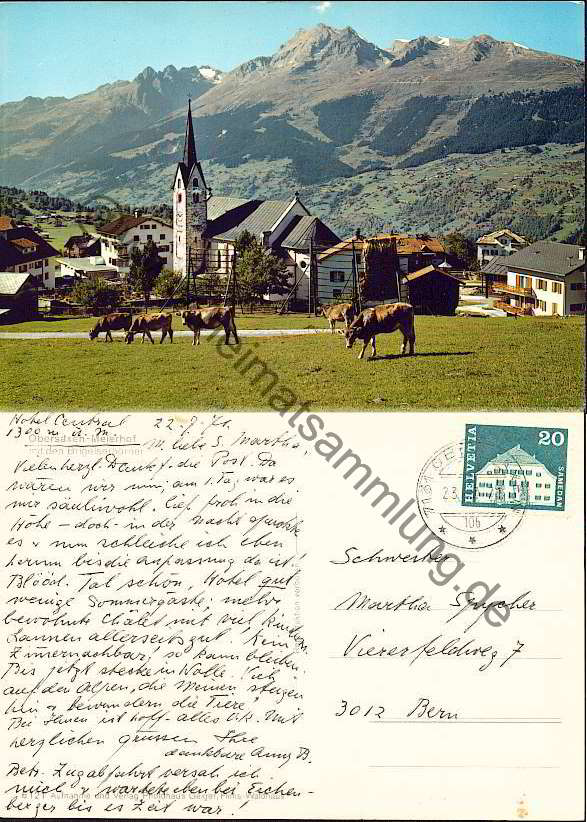 Hotel Central 22.7.71
1300 m ü. M.
Obersaxen-Meierhof
mit den Brigelserhörner
M. liebe S. Martha,
Vielen herzl. Dank f. die Post. Da
waren wir nun, am 1. Ta, war es
mir säuliwohl. Lief froh in die
Höhe – doch – in der Nacht spukte
es & nun schleiche ich eben
herum bis die Anpassung da ist!
Blööd. Tal schön, Hotel gut
wenige Sommergäste; mehr
bewohnte Chalet mit viel Kindern
Launen allerseits gut. Kein
Zimmernachbar! so kann bleiben
Bis jetzt stecke in Wolle. Vieh
auf den Alpen, die Meinen steigen
hin & bewundern die Tiere!
Bei Ihnen ist hoff. alles O.K. Mit
herzlichen Grüssen Ihre
dankbare Anny B.
Betr. Zugabfahrt versah ich
mich & wartete eben bei Eschen-
berger bis es Zeit war!
Aufnahme und Verlag Photohaus Geiger, Flims-Waldhaus
HELVETIA
20
SAMEDAN
Schwester
Martha Spycher
Viererfeldweg 7
3012 Bern
heimatsammlung.de